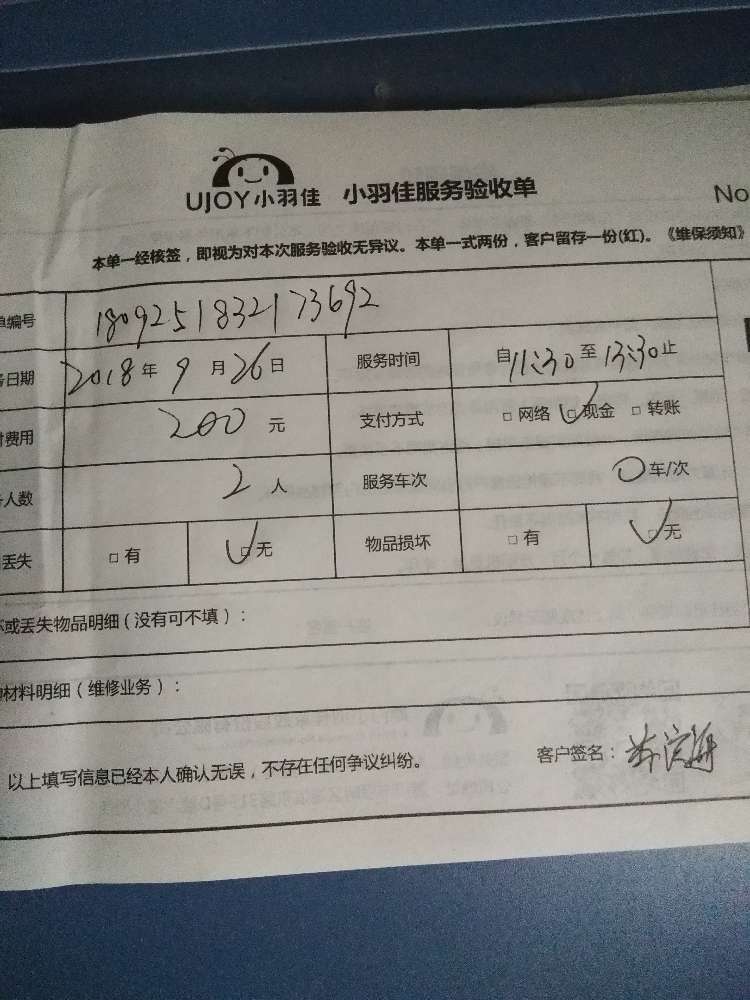 UJOY小羽佳 小羽佳服务验收单
No
本单一经核签，即视为对本次服务验收无异议。本单一式两份，客户留存一份(红)。《维保须知》
单编号 1809251832173692
务日期 2018年9月26日 服务时间 自11:30至13:30止
付费用 200元 支付方式 □网络 □现金 □转账
人数 2人 服务车次 0车/次
丢失 □有 □无 物品损坏 □有 □无
坏或丢失物品明细(没有可不填)：
材料明细(维修业务)：
以上填写信息已经本人确认无误，不存在任何争议纠纷。 客户签名：